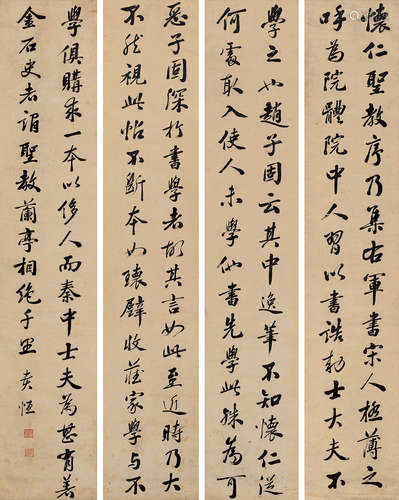 懷仁聖教序乃集右軍書宋人極薄之
呼為院體院中人習以書誥勅士大夫不
學之也趙子固云其中逸筆不知懷仁從
何處取入使人未學他書先學此殊為可
惡子固深於書學者故其言如此至近時乃大
不然視此帖不斷本如瓌璧收藏家學與不
學俱購求一本以侈人而秦中士夫為甚有著
金石史者謂聖教蘭亭相絶千里